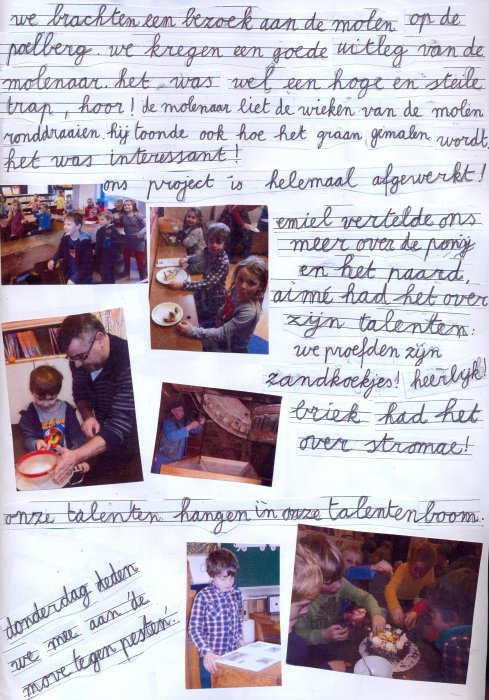 we brachten een bezoek aan de molen op de
poelberg. we kregen een goede uitleg van de
molenaar. het was wel een hoge en steile
trap, hoor! de molenaar liet de wieken van de molen
ronddraaien. hij toonde ook hoe het graan gemalen wordt.
het was interessant!
ons project is helemaal afgewerkt!
emiel vertelde ons
meer over de pony
en het paard.
aimé had het over
zijn talenten:
we proefden zijn
zandkoekjes! heerlijk!
briek had het
over stromae!
onze talenten hangen in onze talentenboom.
donderdag deden
we mee aan de
move tegen pesten!